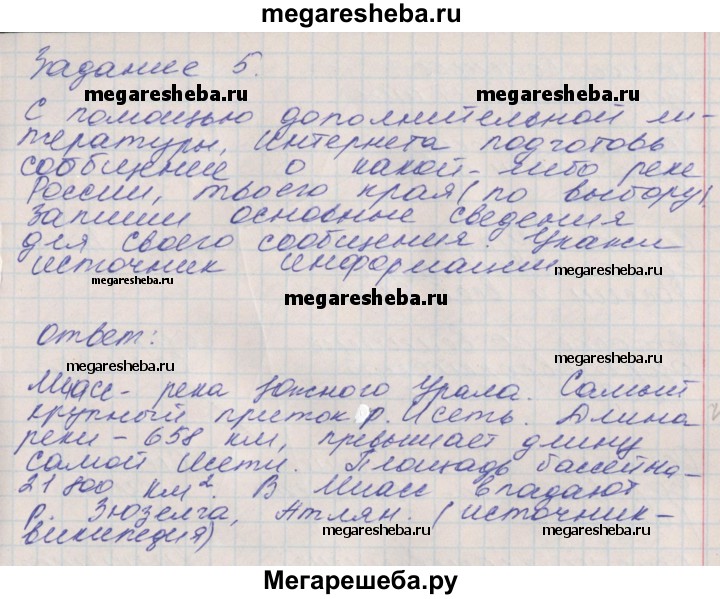 megaresheba.ru
Задание 5.
megaresheba.ru megaresheba.ru
С помощью дополнительной ли-
тературы, интернета подготовь
сообщение о какой-либо реке
России, твоего края (по выбору).
Запиши основные сведения
для своего сообщения. Укажи
источник информации
megaresheba.ru megaresheba.ru
megaresheba.ru
Ответ:
megaresheba.ru megaresheba.ru
Миасс - река Южного Урала. Самый
крупный приток р. Исеть. Длина
реки - 658 км, превышает длину
самой Исети. Площадь бассейна -
21 800 км². В Миасс впадают
р. Зюзелга, Атлян. (источник -
википедия)
megaresheba.ru megaresheba.ru
Мегарешеба.ру